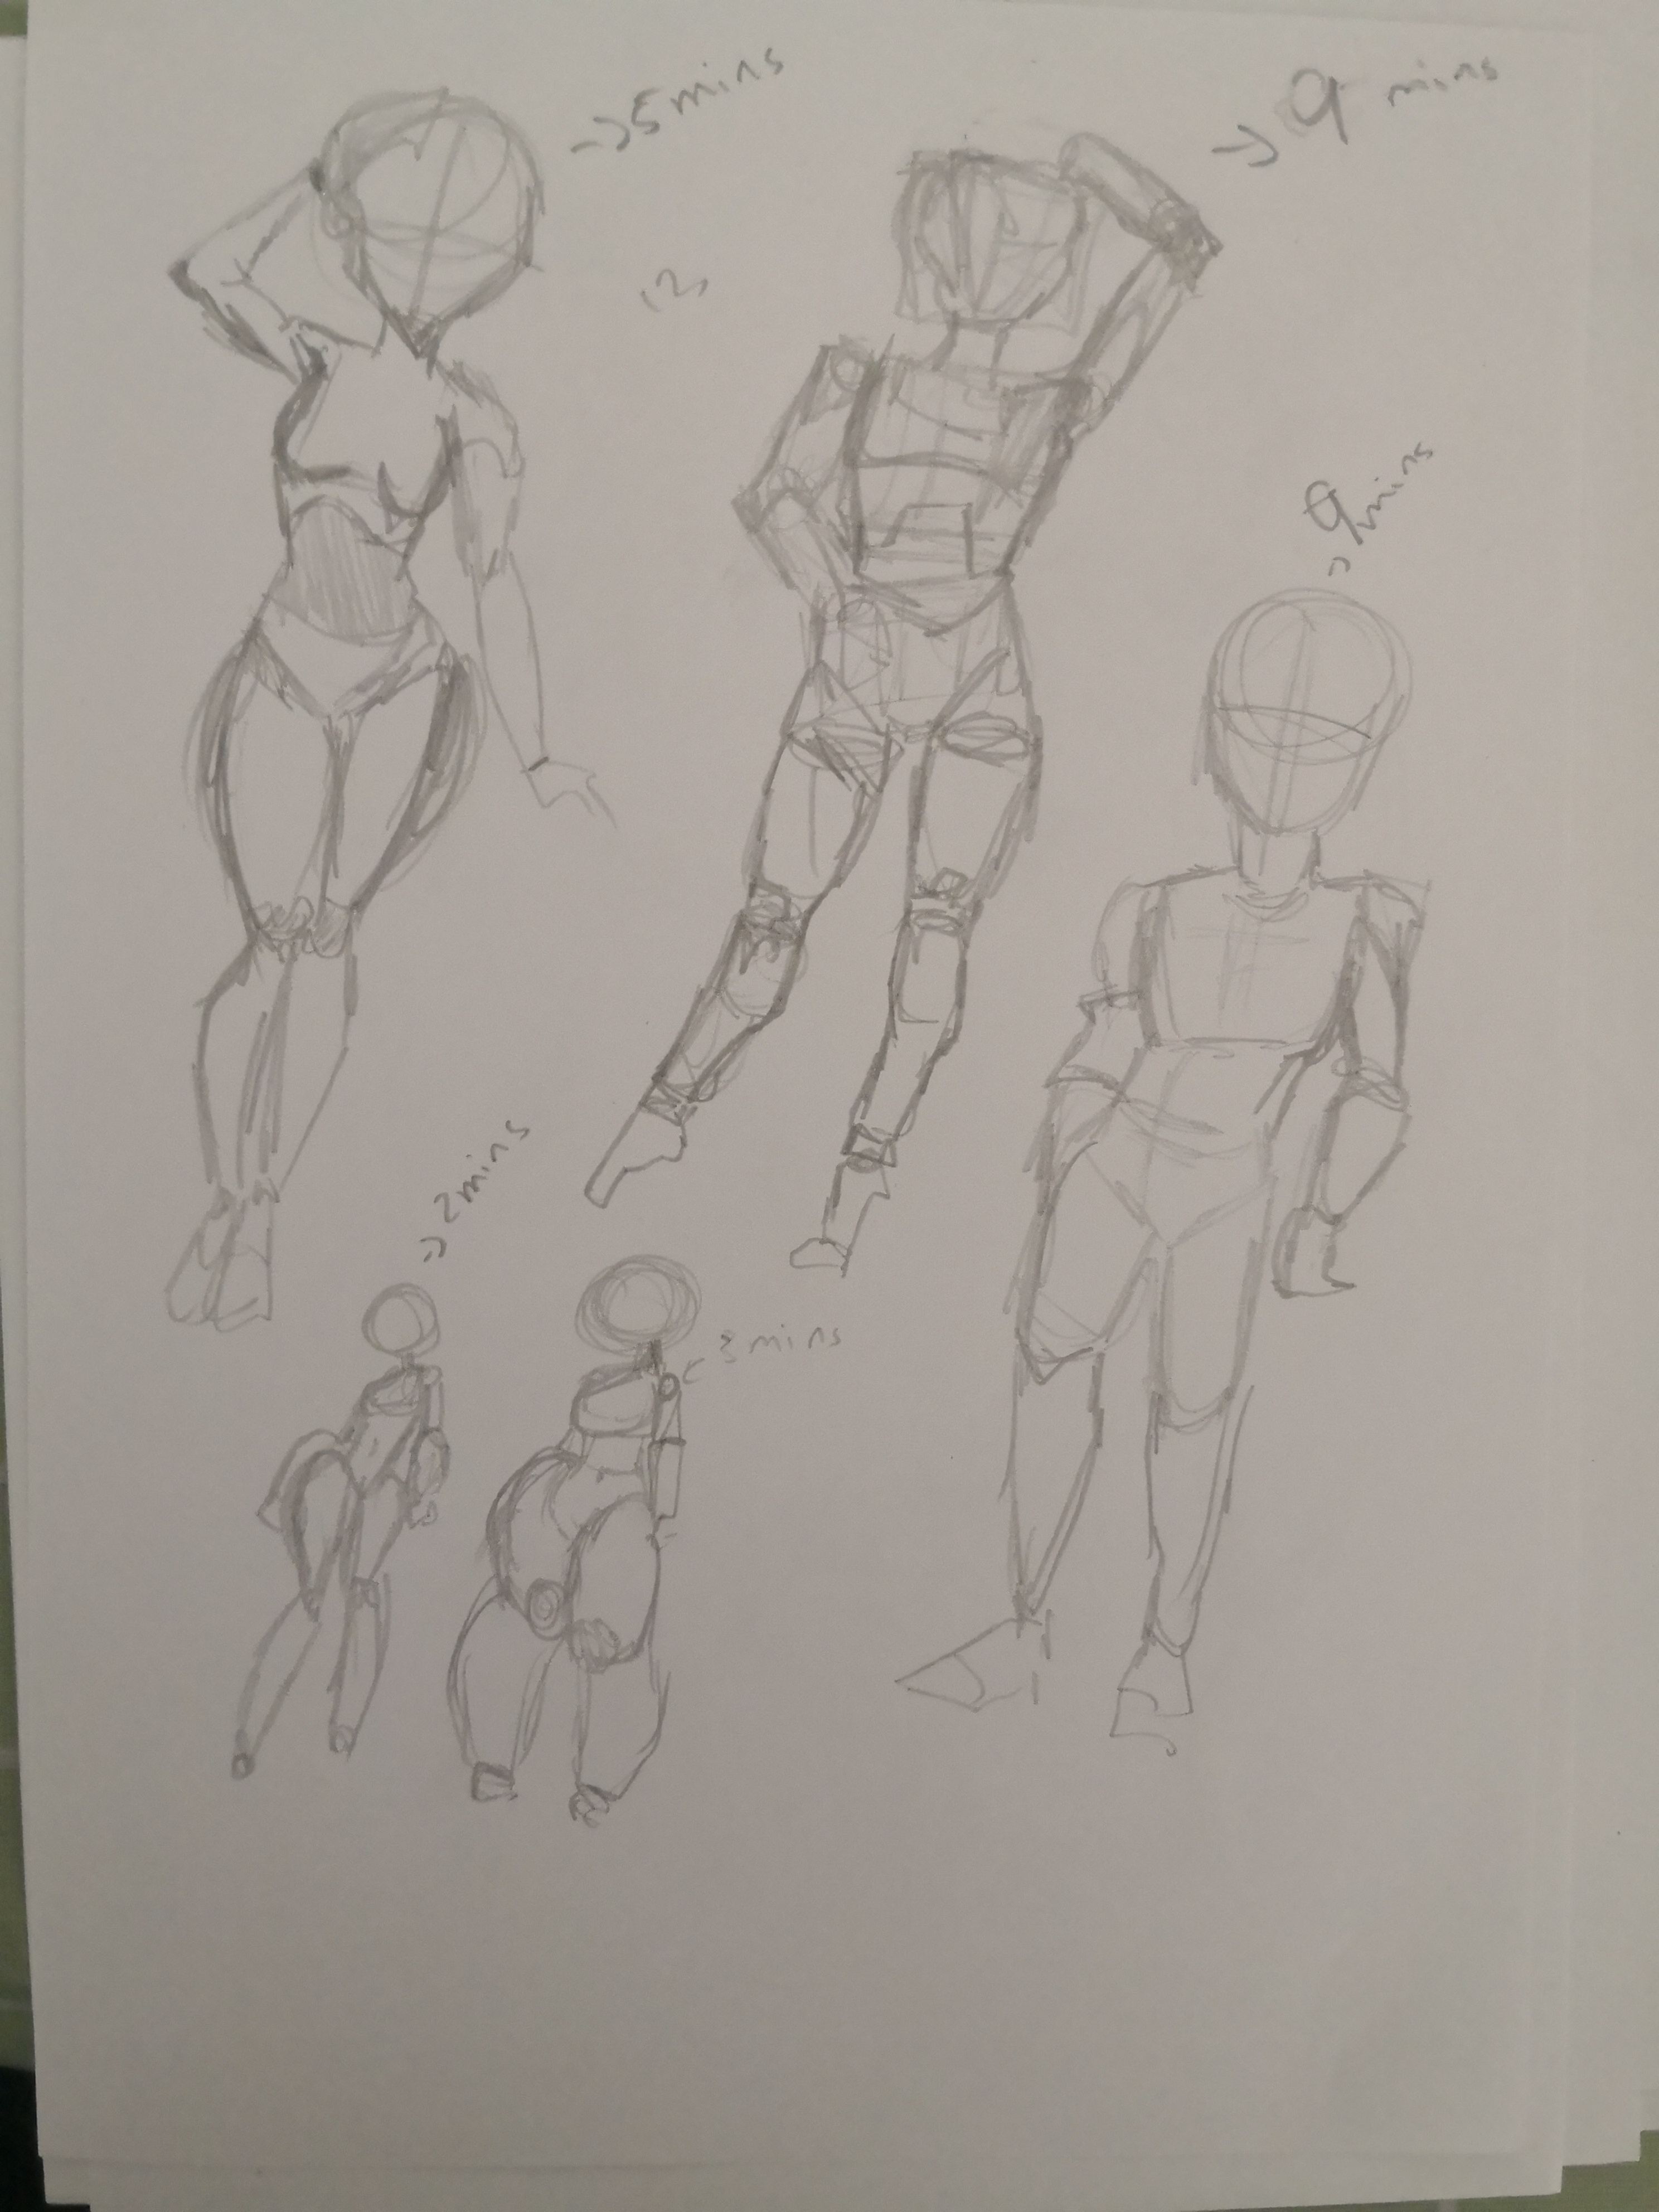 →5 mins
→ 9 mins
→ 9 mins
→ 2 mins
← 3 mins